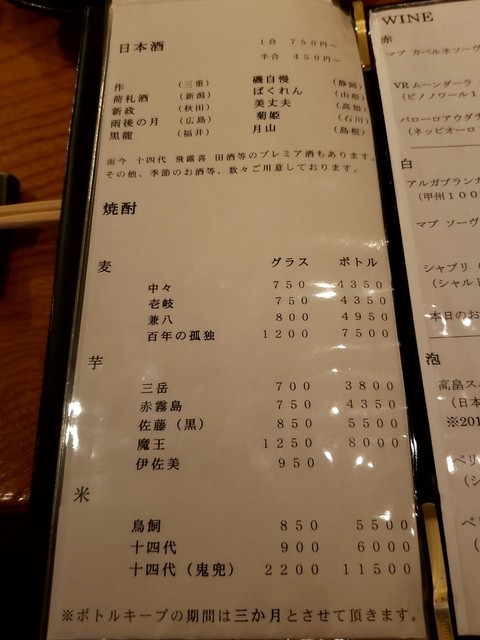 日本酒
1合 750円～
半合 450円～
作 (三重)
荷札酒 (新潟)
新政 (秋田)
雨後の月 (広島)
黒龍 (福井)
磯自慢 (静岡)
ばくれん (山形)
美丈夫 (高知)
菊姫 (石川)
月山 (島根)
而今 十四代 飛露喜 田酒等のプレミア酒もあります。
その他、季節のお酒等、数々ご用意しております。
焼酎
麦 グラス ボトル
中々 750 4350
壱岐 750 4350
兼八 800 4950
百年の孤独 1200 7500
芋
三岳 700 3800
赤霧島 750 4350
佐藤(黒) 850 5500
魔王 1250 8000
伊佐美 950
米
鳥飼 850 5500
十四代 900 6000
十四代(鬼兜) 2200 11500
※ボトルキープの期間は三か月とさせて頂きます。
WINE
赤
マプ カベルネソーヴ
VRムーンダーラ
(ピノノワール1
バローロアウダチ
(ネッビオーロ
白
アルガブランカ
(甲州100
マプ ソーヴ
シャブリ
(シャルド
本日のお
泡
高畠ス
(日本
※201
ペリ
(シ